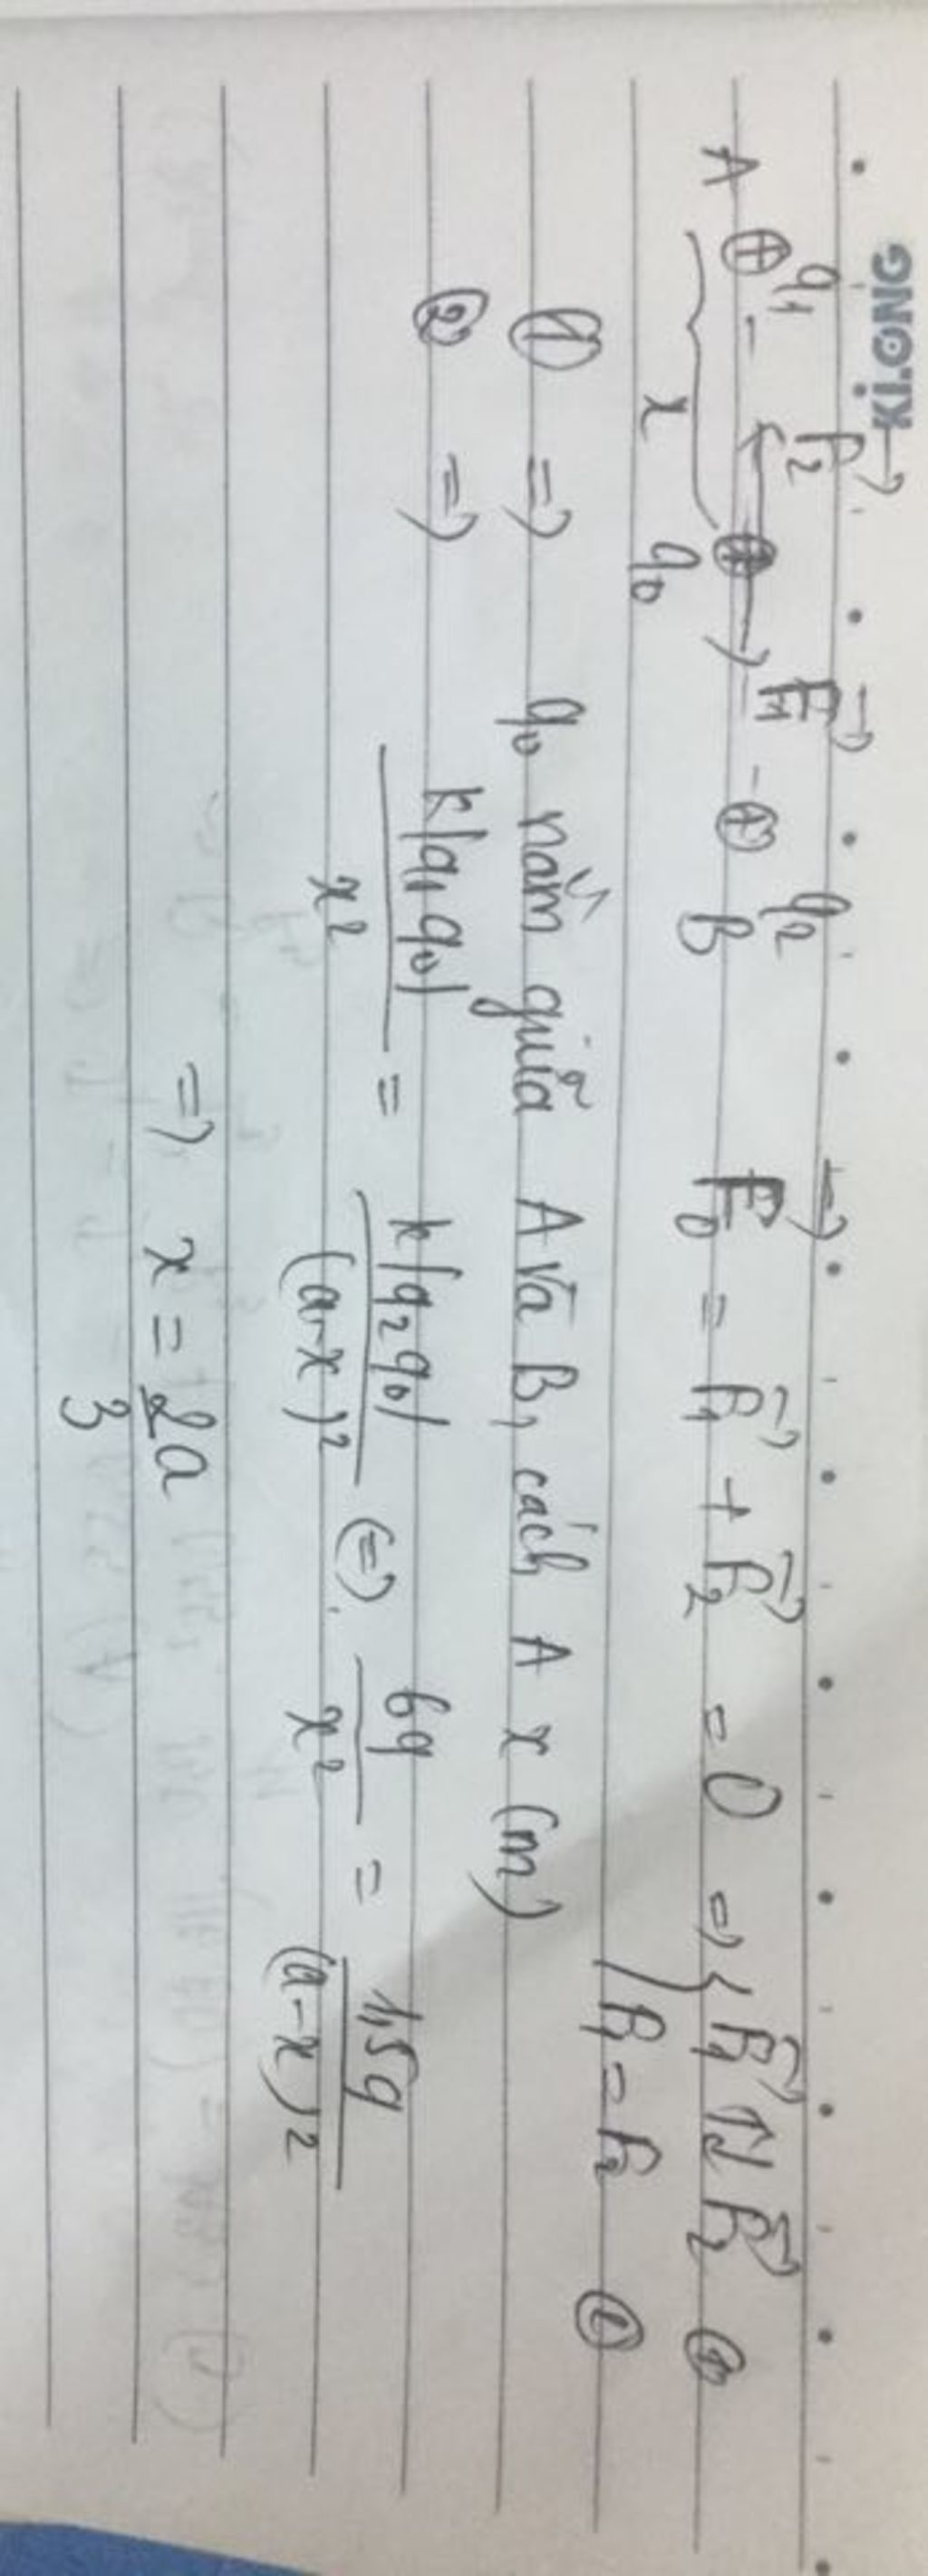 Ki.ONG
A ⊕ q₁ - F₂⃗ ← ⊕ → F₁⃗ - ⊕ q₂ B F₀⃗ = F₁⃗ + F₂⃗ = 0 => { F₁⃗ ↑↓ F₂⃗ ①
x q₀ F₁ = F₂ ②
① => q₀ nằm giữa A và B, cách A x (m)
② => k|q₁q₀| / x² = k|q₂q₀| / (a-x)² <=> 6q / x² = 1,5q / (a-x)²
=> x = 2a / 3